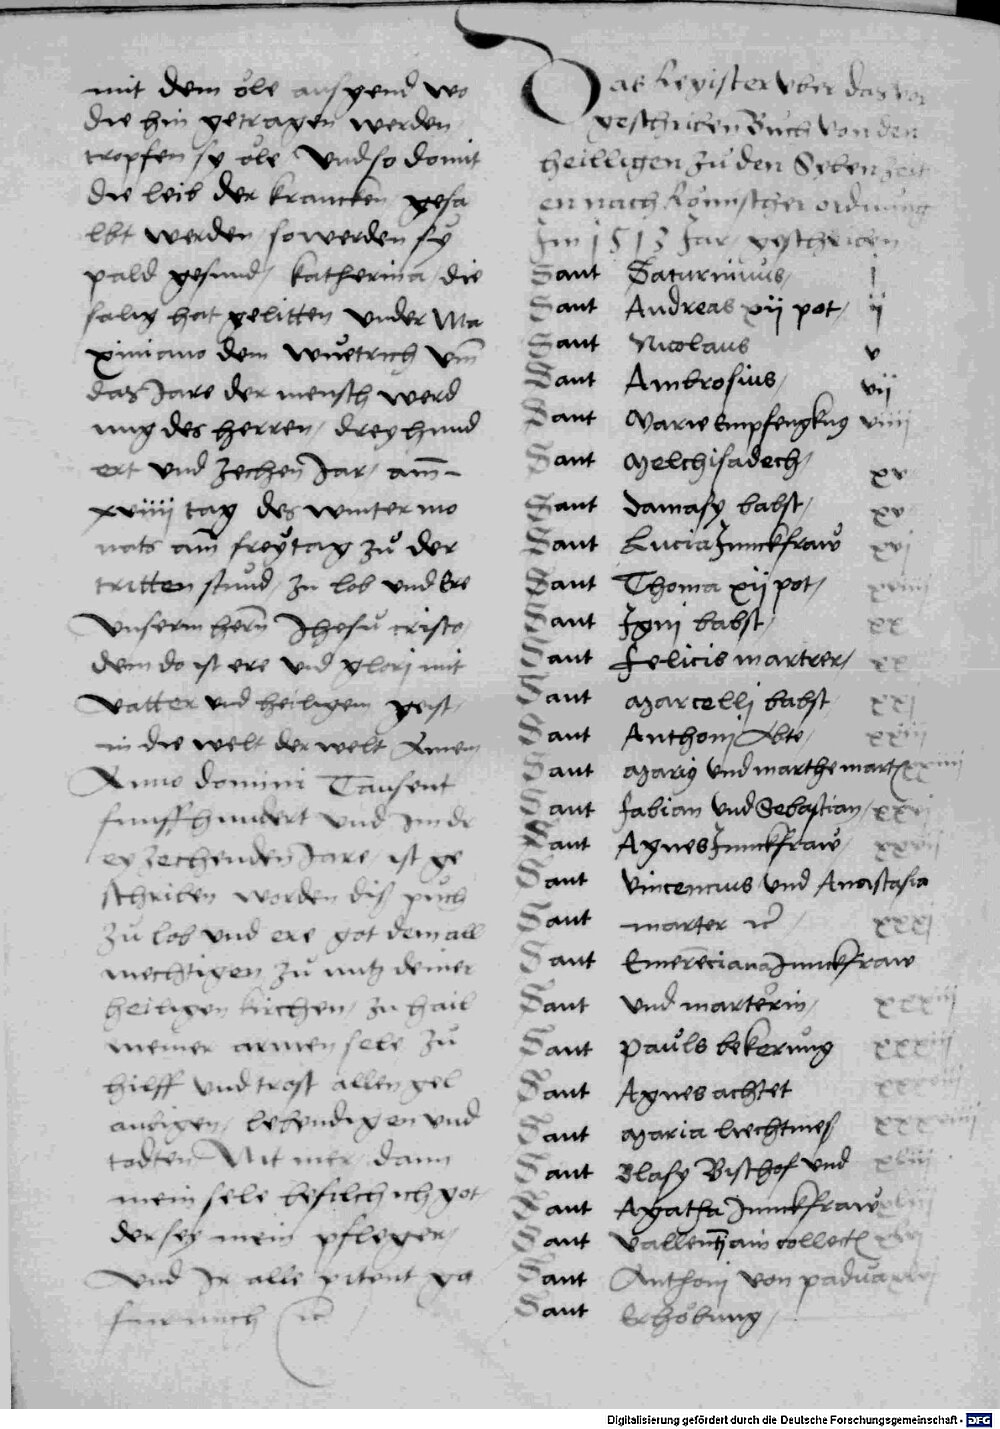 mit dem öle ausgend wo
die hin getragen werden
tropfen sy öle Und so domit
die leib der krancken gesa
lbt werden / so werden sy
pald gesund / katherina / die
salig hat gelitten under Ma
ximiano dem wuetrich Um̄
das Jare der mensch werd
ung des herren / dreyhund
ert und zechen Jar / am̄ -
xviiij tag des winter mo
nats am̄ freytag zů der
tritten stund / zu lob und Ere
Unserm herrn̄ Jhesu cristo /
dem do ist ere und glori mit
Vatter und heiligem geist /
in die welt der welt Amen
Anno domini Tausent
funffhundert und Im dr
eyzechenden Jare / ist ge
schriben worden diß puch
zů lob und ere got dem all
mechtigen zů nutz deiner
heiligen kirchen / zu hail
meiner armen sele zů
hilff und trost allen gel
aubigen / lebendigen und
todten Nit mer / dann
mein sele befilch ich got /
der sey mein pfleger /
Und Ir alle pitent go
fur mich ꝛc
Das Register Uber das vor
geschriben Buch Von den
heilligen zů den Syben zeit
en nach Römischer ordnung
Jm 1513 Jar / geschriben
Sant Saturninus / j
Sant Andreas xij pot / ij
Sant Nicolaus v
Sant Ambrosius / vij
Sant Marie Empfengkng viiij
Sant Melchisadech / xv
Sant Damasy babst / xv
Sant Lucia Junckfraw xvj
Sant Thoma xij pot / xviiij
Sant Jgni babst / xx
Sant Felicis martrer / xx
Sant Marcelli babst xxj
Sant Anthoni Abte / xxiij
Sant Mariy und marthe mart xxiiij
Sant Fabian und Sebastian / xxvj
Sant Agnes Junckfraw / xxvij
Sant Vincencius und Anastasia
Sant marter ꝛc / xxxj
Sant Emerenciana Junckfraw
Sant und marterin / xxxiij
Sant Pauls bekerung xxxiiij
Sant Agnes achtet
Sant Maria liechtmeß
Sant Blasy Bischof und xliij
Sant Agatha Junckfraw
Sant Vallentj ain collect xlvj
Sant Anthoni von padua
Sant Erhöbung /
Digitalisierung gefördert durch die Deutsche Forschungsgemeinschaft - DFG